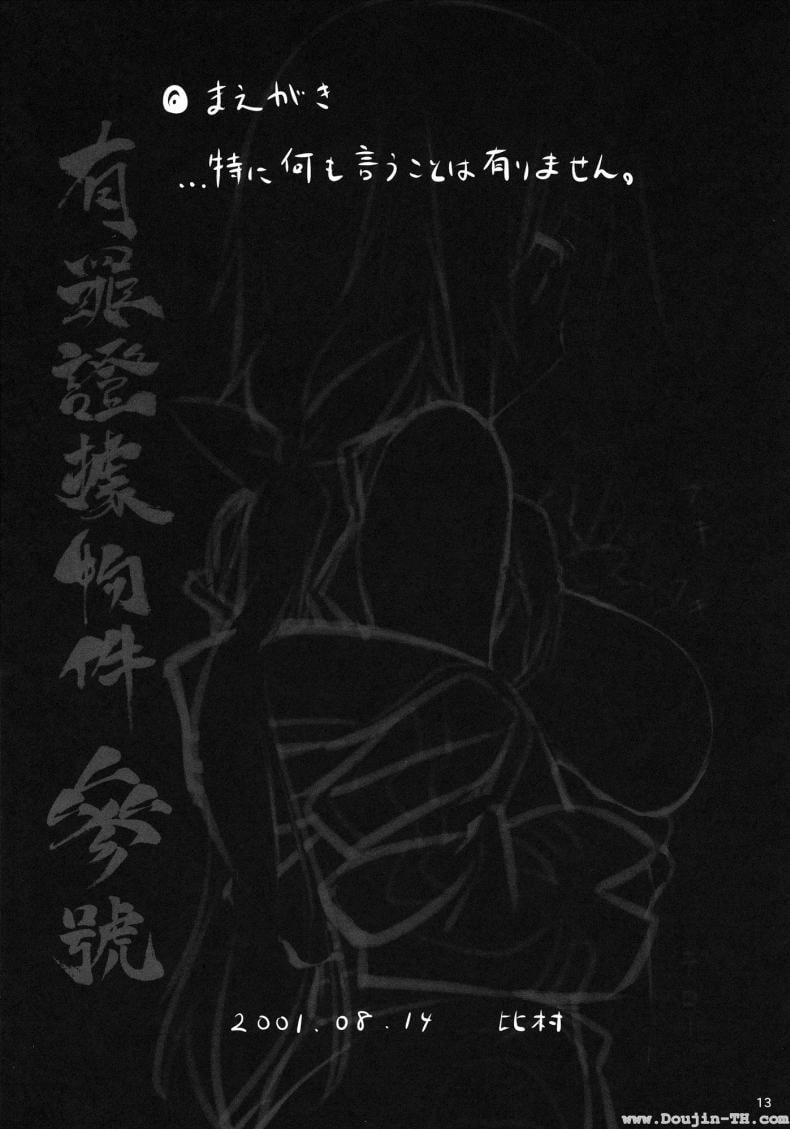 まえがき
…特に何も言うことは有りません。
有罪證據物件 參號
2001.08.14 比村
13
www.Doujin-TH.com